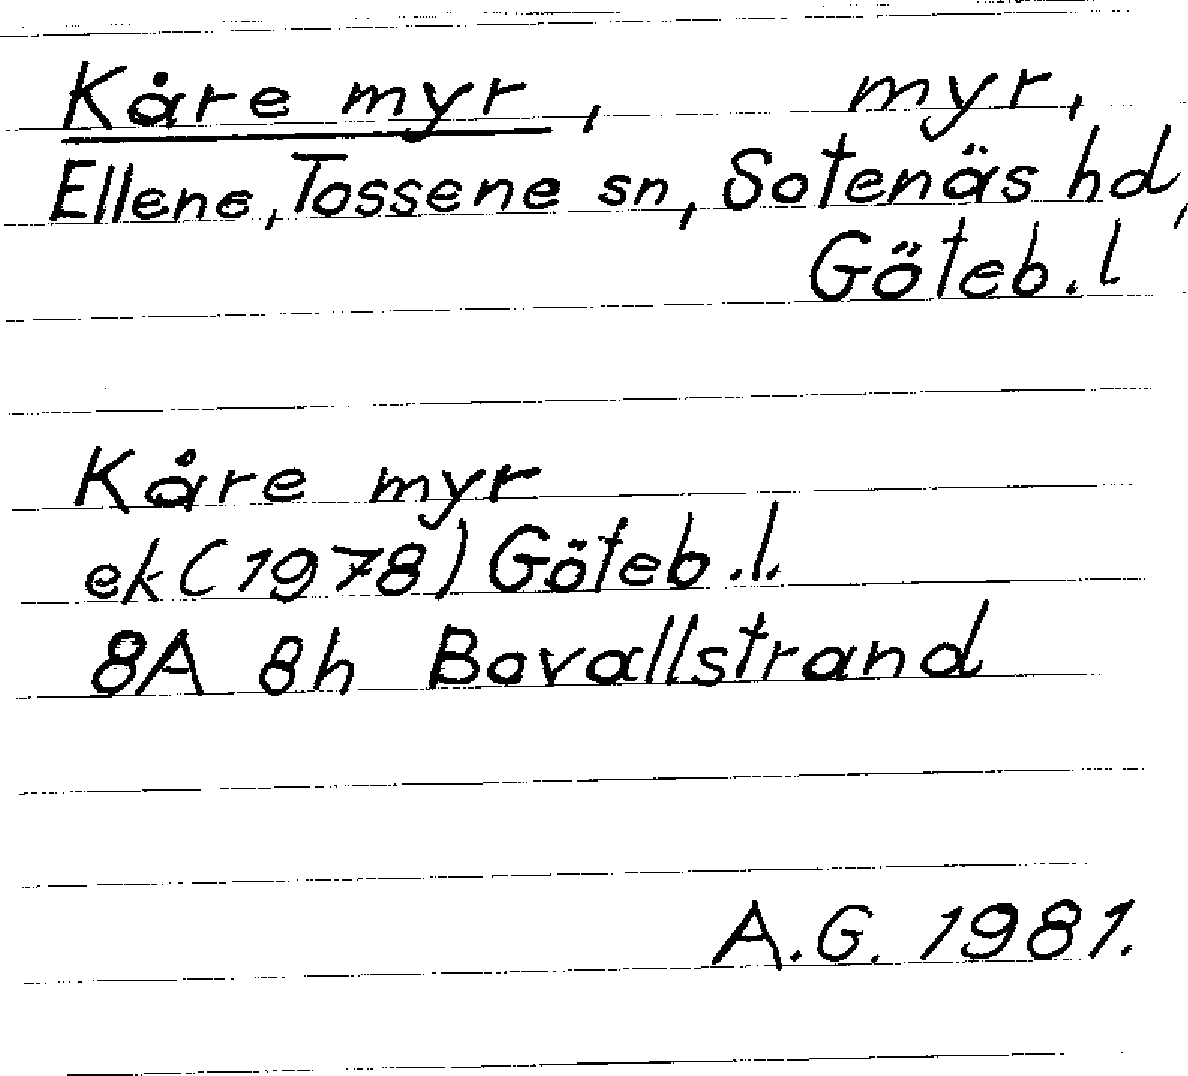 Kåre myr, myr,
Ellene, Tossene sn, Sotenäs hd,
Göteb. l
Kåre myr
ek (1978) Göteb. l.
8A 8h Bovallstrand
A.G. 1981.